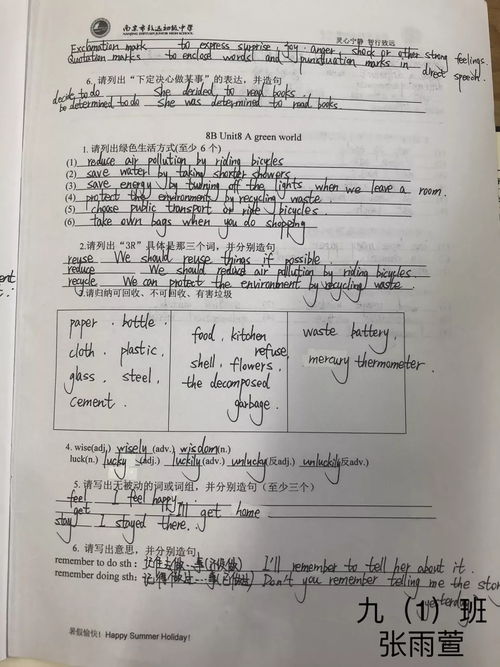 南京市致远初级中学
NANJING ZHIYUAN JUNIOR HIGH SCHOOL
灵心宁静 智行致远
Exclamation mark to express surprise, joy, anger, shock or other strong feelings.
Quotation marks to enclose words and punctuation marks in direct speech.
6. 请列出“下定决心做某事”的表达,并造句
decide to do She derided to read books.
be determined to do She was determined to read books
8B Unit8 A green world
1. 请列出绿色生活方式(至少 6 个)
(1) reduce air pollution by riding bicycles
(2) save water by taking shorter showers
(3) save energy by turning off the lights when we leave a room.
(4) protect the environment by recycling waste
(5) choose public transport or ride bicycles.
(6) take own bags when you do shopping
2.请列出“3R”具体是那三个词,并分别造句
reuse We should reuse things if possible
reduce We should reduce air pollution by riding bicycles
recycle We can protect the environment by recycling waste.
3.请归纳可回收、不可回收、有害垃圾
paper. bottle.
cloth. plastic,
glass, steel,
cement.
food, kitchen
refuse,
shell, flowers,
the decomposed
garbage.
waste battery,
mercury thermometer.
4. wise(adj.) wisely (adv.) wisdom(n.)
luck(n.) lucky (adj.) luckily (adv.) unlucky(反adj.) unluckily(反adv.)
5. 请写出无被动的词或词组,并分别造句(至少三个)
feel I feel happy.
get I'll get home
stay I stayed there.
6. 请写出意思,并分别造句
remember to do sth: 记得去做…事(还没做) I'll remember to tell her about it.
remember doing sth: 记得做过…事(已做过) Don't you remember telling me the story
yesterday
暑假愉快!Happy Summer Holiday!
九(1)班
张雨萱